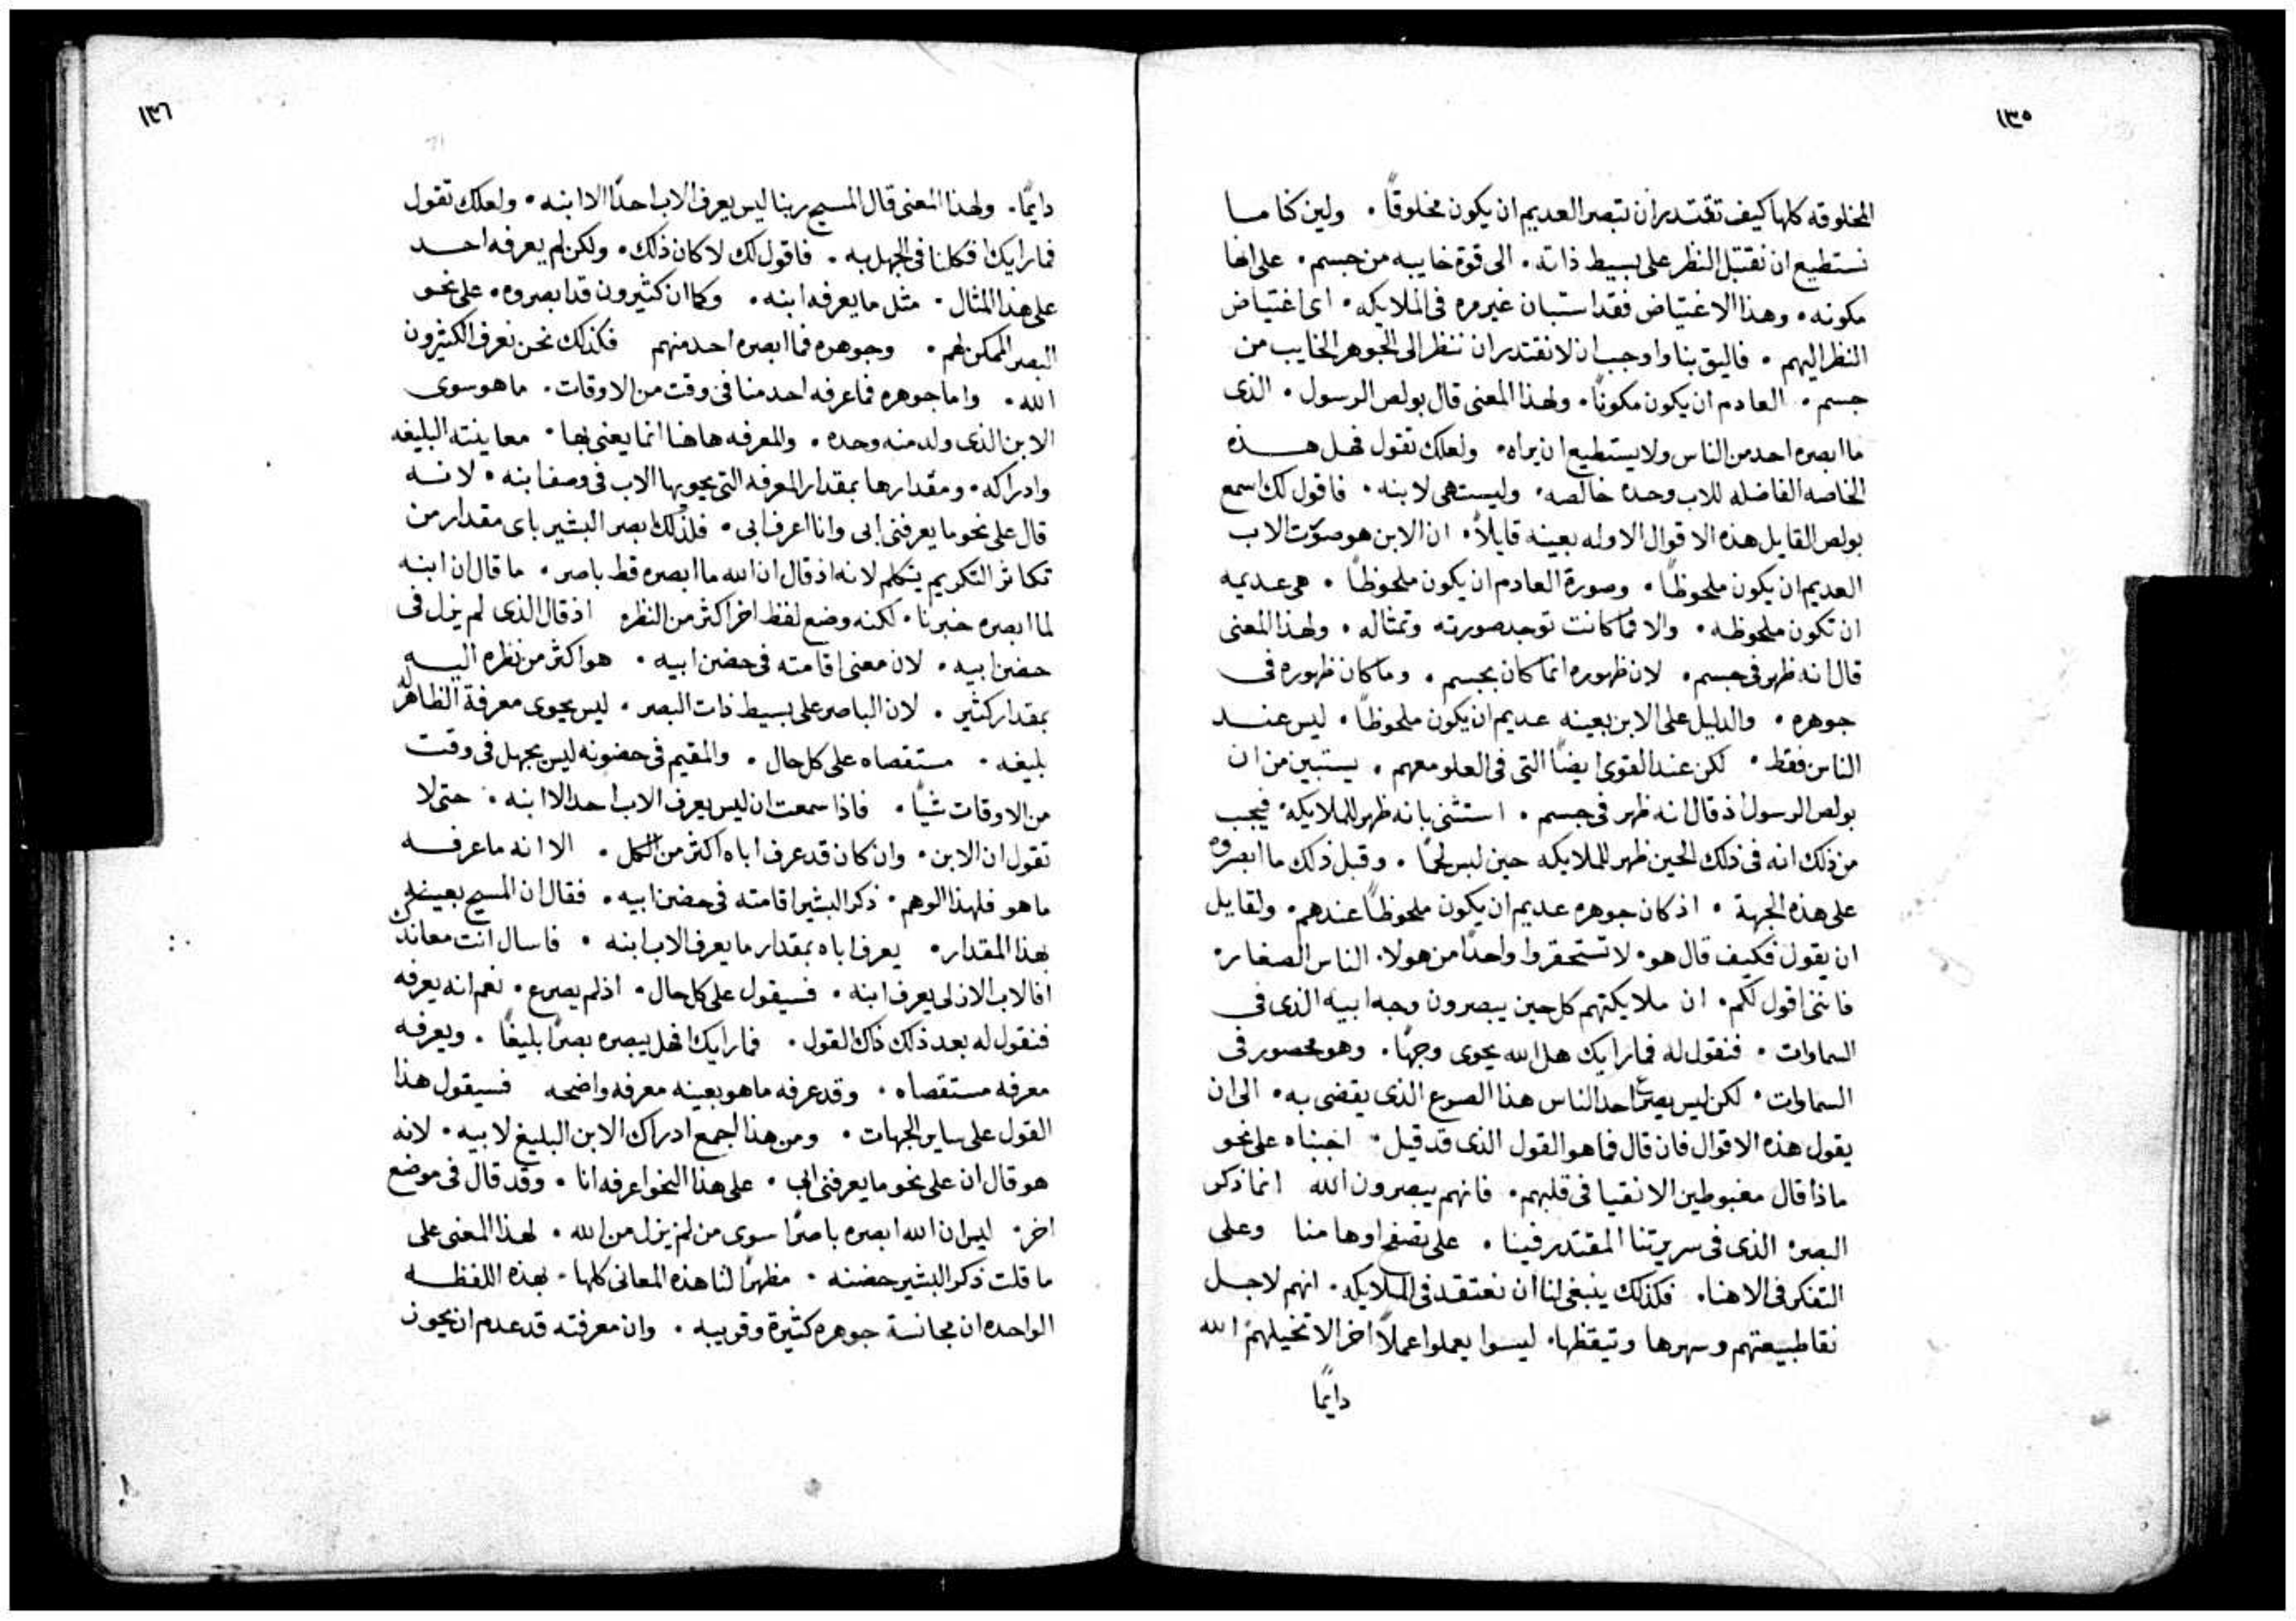 ١٣٥
المخلوقه كلها كيف تقتدر ان تبصر العديم ان يكون مخلوقاً ۰ ولين كنا ما
نستطيع ان نقتبل النظر على بسيط ذاته ۰ الى قوة خايبه من جسم ۰ على انها
مكونه ۰ وهذا الاغتياض فقد استبان غير مره فى الملايكه ۰ اى اغتياض
النظر اليهم ۰ فاليق بنا واوجب ان لا نقتدر ان ننظر الى الجوهر الخايب من
جسم ۰ العادم ان يكون مكونًا ۰ ولهذا المعنى قال بولص الرسول ۰ الذى
ما ابصره احد من الناس ولا يستطيع ان يراه ۰ ولعلك تقول فهل هذه
الخاصه الفاضله للاب وحده خالصه ۰ وليست هى لابنه ۰ فاقول لك اسمع
بولص القايل هذه الاقوال الاوله بعينه قايلاً ۰ ان الابن هو صوّت الاب
العديم ان يكون ملحوظاً ۰ وصورة العادم ان يكون ملحوظاً ۰ هى عديمه
ان تكون ملحوظه ۰ والا فما كانت توجد صورته وتمثاله ۰ ولهذا المعنى
قال انه ظهر فى جسم ۰ لان ظهوره انما كان بجسم ۰ وما كان ظهوره فى
جوهره ۰ والدليل على الابن بعينه عديم ان يكون ملحوظاً ۰ ليس عند
الناس فقط ۰ لكن عند القوى ايضًا التى فى العلو معهم ۰ يستبين من ان
بولص الرسول اذ قال انه ظهر فى جسم ۰ استثنى بانه ظهر للملايكة ۰ فيجب
من ذلك انه فى ذلك الحين ظهر للملايكه حين لبس لحمًا ۰ وقبل ذلك ما ابصروه
على هذه الجهة ۰ اذ كان جوهره عديم ان يكون ملحوظاً عندهم ۰ ولقايل
ان يقول فكيف قال هو ۰ لا تستحقروا واحدًا من هولا ۰ الناس الصغار ۰
فانني اقول لكم ۰ ان ملايكتهم كل حين يبصرون وجه ابيه الذى فى
السماوات ۰ فنقول له فما رايك هل الله يحوى وجهًا ۰ وهو محصور فى
السماوات ۰ لكن ليس يصرع احد الناس هذا الصرع الذى يقضى به ۰ الى ان
يقول هذه الاقوال فان قال فما هو القول الذى قد قيل ۰ اجبناه على نحو
ماذا قال مغبوطين الانقيا فى قلبهم ۰ فانهم يبصرون الله انما ذكر
البصر ۰ الذى فى سريرتنا المقتدر فينا ۰ على تصفح اوهامنا وعلى
التفكر فى الاهنا ۰ فكذلك ينبغى لنا ان نعتقد فى الملايكه ۰ انهم لاجل
نقا طبيعتهم وسهرها وتيقظها ۰ ليسوا يعملوا عملاً اخر الا تخيلهم الله
دايمًا
١٣٦
دايمًا ۰ ولهذا المعنى قال المسيح ربنا ليس يعرف الاب احدًا الا ابنه ۰ ولعلك تقول
فما رايك افكلنا فى الجهل به ۰ فاقول لك لا كان ذلك ۰ ولكن لم يعرفه احد
على هذا المثال ۰ مثل ما يعرفه ابنه ۰ وكما ان كثيرون قد ابصروه ۰ على نحو
البصر الممكن لهم ۰ وجوهره فما ابصره احد منهم فكذلك نحن نعرف الكثيرون
الله ۰ واما جوهره فما عرفه احد منا فى وقت من الاوقات ۰ ما هو سوى
الابن الذى ولد منه وحده ۰ والمعرفه هاهنا انما يعنى بها ۰ معاينته البليغه
وادراكه ۰ ومقدارها بمقدار المعرفه التى يحويها الاب فى وصف ابنه ۰ لانه
قال على نحو ما يعرفنى ابى وانا اعرف ابى ۰ فلذلك ابصر البشير باى مقدار من
تكاثر التكريم يتكلم لانه اذ قال ان الله ما ابصره قط باصر ۰ ما قال ان ابنه
لما ابصره خبرنا ۰ لكنه وضع لفظ اخر اكثر من النظره اذ قال الذى لم يزل فى
حضن ابيه ۰ لان معنى اقامته فى حضن ابيه ۰ هو اكثر من نظره اليه
بمقدار كثير ۰ لان الباصر على بسيط ذات البصر ۰ ليس يحوى معرفة الظاهر له
بليغه ۰ مستقصاه على كل حال ۰ والمقيم فى حضونه ليس يجهل فى وقت
من الاوقات شيًا ۰ فاذا سمعت ان ليس يعرف الاب احد الا ابنه ۰ حتى لا
تقول ان الابن ۰ وان كان قد عرف اباه اكثر من الكل ۰ الا انه ما عرفه
ما هو فلهذا الوهم ۰ ذكر البشير اقامته فى حضن ابيه ۰ فقال ان المسيح بعينه
بهذا المقدار ۰ يعرف اباه بمقدار ما يعرف الاب ابنه ۰ فاسال انت معاندك
افالاب الازلى يعرف ابنه ۰ فسيقول على كل حال ۰ اذ لم يصرع ۰ نعم انه يعرفه
فنقول له بعد ذلك ذاك القول ۰ فما رايك افهل يبصره بصرًا بليغًا ۰ ويعرفه
معرفه مستقصاه ۰ وقد عرفه ما هو بعينه معرفه واضحه فسيقول هذا
القول على ساير الجهات ۰ ومن هذا اجمع ادراك الابن البليغ لابيه ۰ لانه
هو قال ان على نحو ما يعرفنى ابى ۰ على هذا النحو اعرفه انا ۰ وقد قال فى موضع
اخر ۰ ليس ان الله ابصره باصرًا سوى من لم يزل من الله ۰ لهذا المعنى على
ما قلت ذكر البشير حضنه ۰ مظهرًا لنا هذه المعانى كلها ۰ بهذه اللفظه
الواحده ان مجانسة جوهره كثيرة وقريبه ۰ وان معرفته قد عدم ان يحون